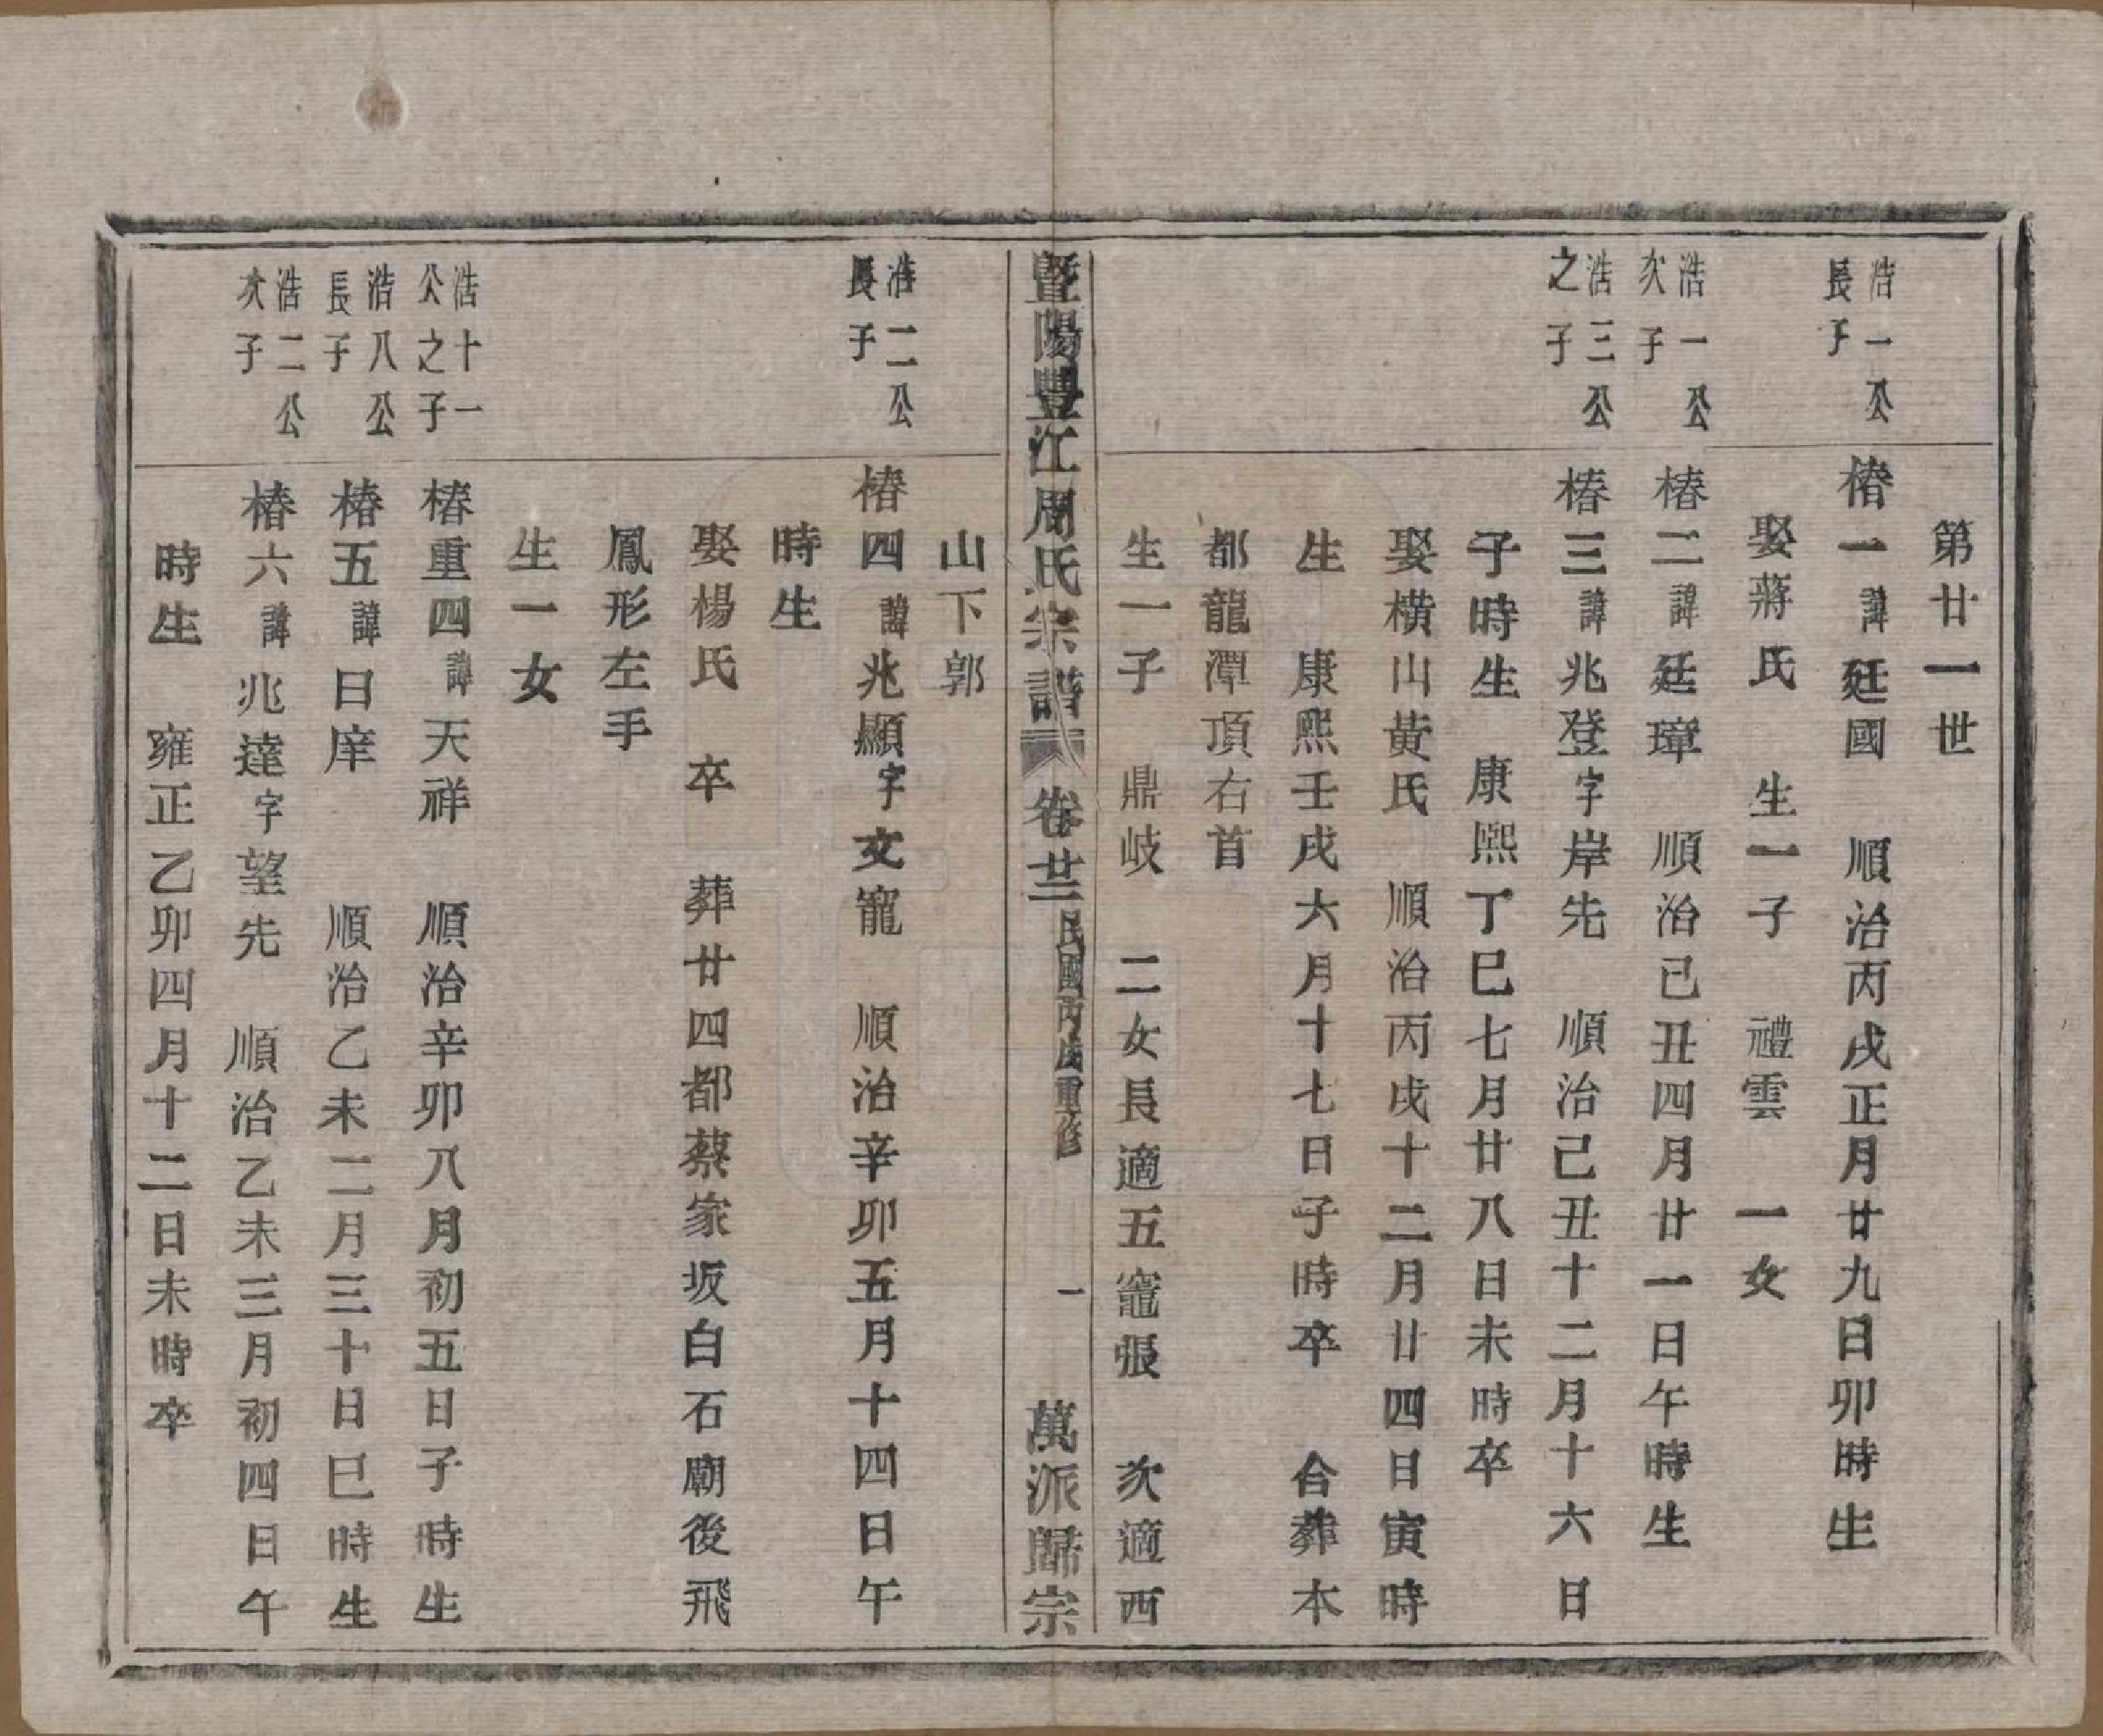 第廿一世
浩一公
長子
椿一諱廷國　順治丙戌正月廿九日卯時生
娶蔣氏　生一子　禮雲　一女
浩一公
次子
椿二諱廷璋　順治己丑四月廿一日午時生
浩三公
之子
椿三諱兆登字岸先　順治己丑十二月十六日
子時生　康熙丁巳七月廿八日未時卒
娶橫山黃氏　順治丙戌十二月廿四日寅時
生　康熙壬戌六月十七日子時卒　合葬本
都龍潭頂右首
生一子　鼎岐　二女長適五竈張　次適西
暨陽豐江周氏宗譜　卷廿二　民國丙戌重修　一　萬派歸宗
山下郭
浩二公
長子
椿四諱兆顯字文寵　順治辛卯五月十四日午
時生
娶楊氏　卒　葬廿四都蔡家坂白石廟後飛
鳳形左手
生一女
浩十一
公之子
椿重四諱天祥　順治辛卯八月初五日子時生
浩八公
長子
椿五諱日庠　順治乙未二月三十日巳時生
浩二公
次子
椿六諱兆達字望先　順治乙未三月初四日午
時生　雍正乙卯四月十二日未時卒